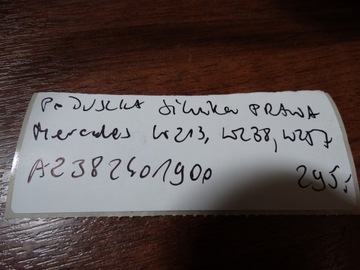 Poduszka silnika PRAWA
Mercedes W213, W238, W257
A2382401900 295,-